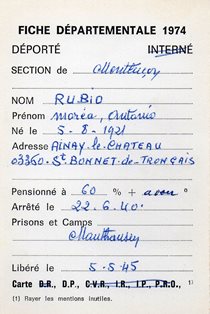 FICHE DÉPARTEMENTALE 1974
DÉPORTÉ INTERNÉ
SECTION de Montluçon
NOM RUBIO
Prénom moréa, Antonio
Né le 5-8-1921
Adresse AINAY-le-CHATEAU
03360-St BONNET-de-TRONÇAIS
Pensionné à 60 % +
Arrêté le 22.6.40.
Prisons et Camps
Mauthausen
Libéré le 5-5-45
Carte D.R., D.P., C.V.R., I.R., I.P., P.R.O., 1)
(1) Rayer les mentions inutiles.